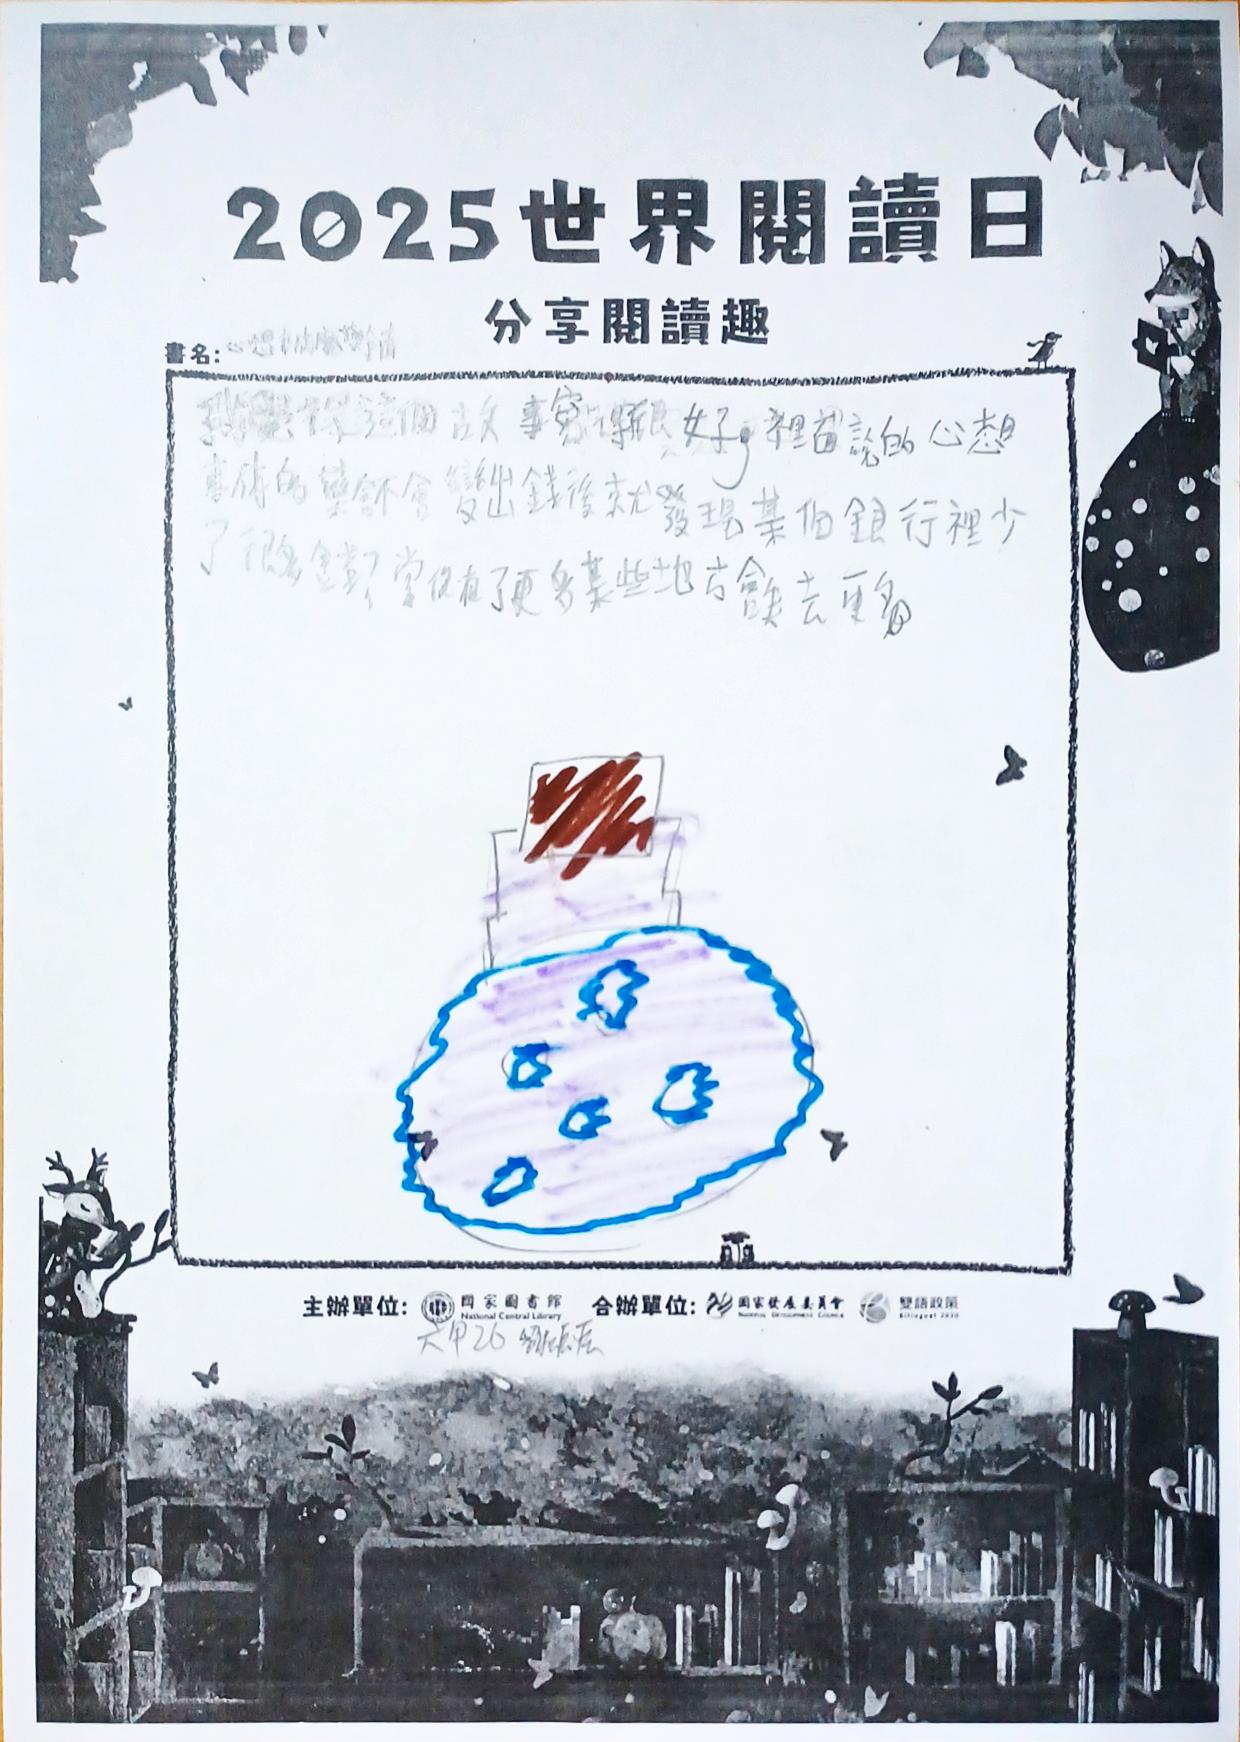 2025世界閱讀日
分享閱讀趣
書名:心想事成
這個故事寫得很好,裡面說的心想
事成的藥會不會變出錢後就發現某個銀行裡少
了很多金幣了當你有了更多某些地方會失去更多
主辦單位: 國家圖書館 National Central Library 合辦單位: 國家發展委員會 NATIONAL DEVELOPMENT COUNCIL 雙語政策 Bilingual 2030
六甲26